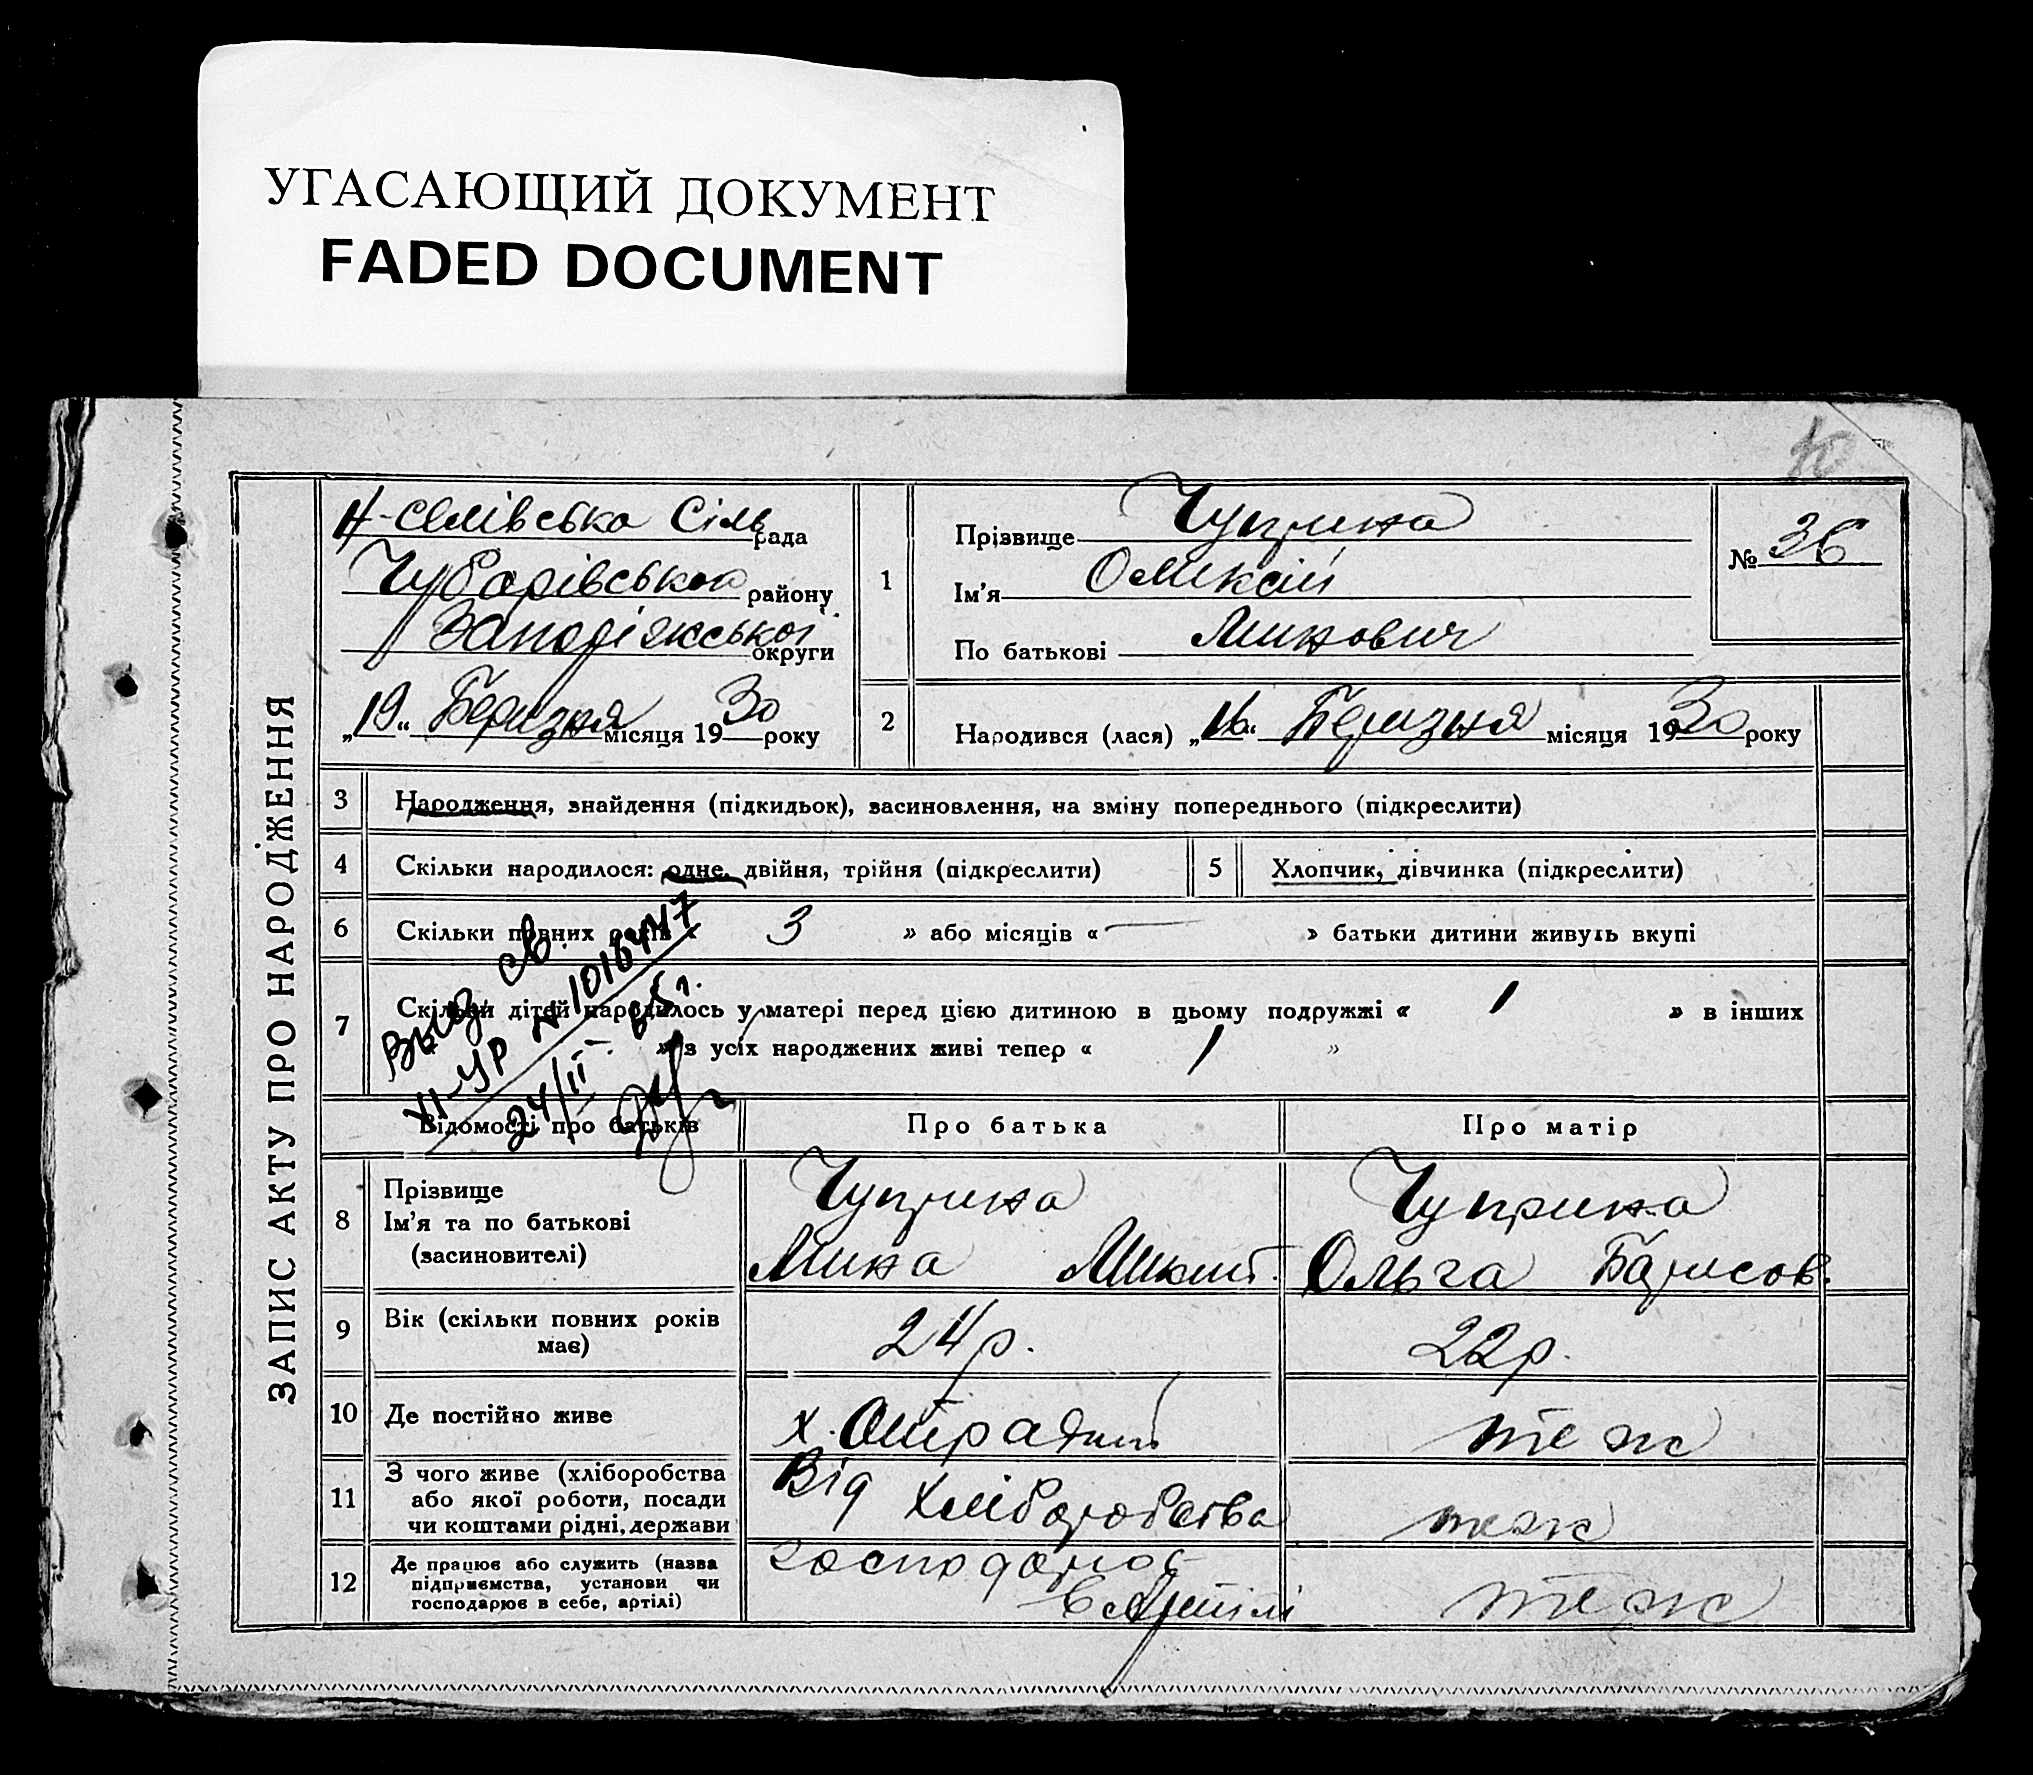 УГАСАЮЩИЙ ДОКУМЕНТ
FADED DOCUMENT
ЗАПИС АКТУ ПРО НАРОДЖЕННЯ
Н-селівська Сіль рада
Чубарівською району
Запоріжської округи
„19“ Березня місяця 1930 року
1
Прізвище Чуприна
Ім'я Оликсій
По батькові Минович
№ 36
2
Народився (лася) „16“ Березня місяця 1930 року
3 Народження, знайдення (підкидьок), засиновлення, на зміну попереднього (підкреслити)
4 Скільки народилося: одне, двійня, трійня (підкреслити)
5 Хлопчик, дівчинка (підкреслити)
6 Скільки повних років « 3 » або місяців « — » батьки дитини живуть вкупі
7 Скільки дітей народилось у матері перед цією дитиною в цьому подружжі « 1 » в інших
» з усіх народжених живі тепер « 1 »
св.
XI-УР № 1016447
24/II 65 г.
Відомості про батьків
Про батька
Про матір
8 Прізвище
Ім'я та по батькові
(засиновителі)
Чуприна
Мина Микит.
Чуприна
Ольга Борисов.
9 Вік (скільки повних років
має)
24 р.
22 р.
10 Де постійно живе
х. Отрадний
теж
11 З чого живе (хліборобства
або якої роботи, посади
чи коштами рідні, держави
Від хліборобства
теж
12 Де працює або служить (назва
підприємства, установи чи
господарює в себе, артілі)
господарює
в Артілі
теж